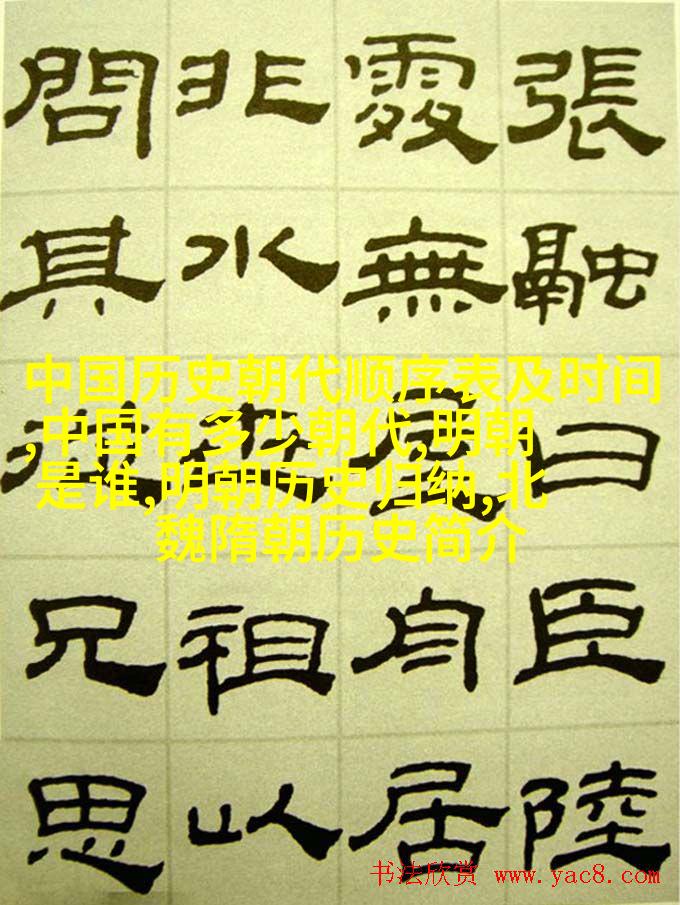 中国历史朝代顺序表及时间
,中国有多少朝代,明朝
是谁,明朝历史归纳,北
魏隋朝历史简介
張融曰臣陸
處無屋舟居
非水世祖以
問其從兄思
书法欣赏 www.yac8.com